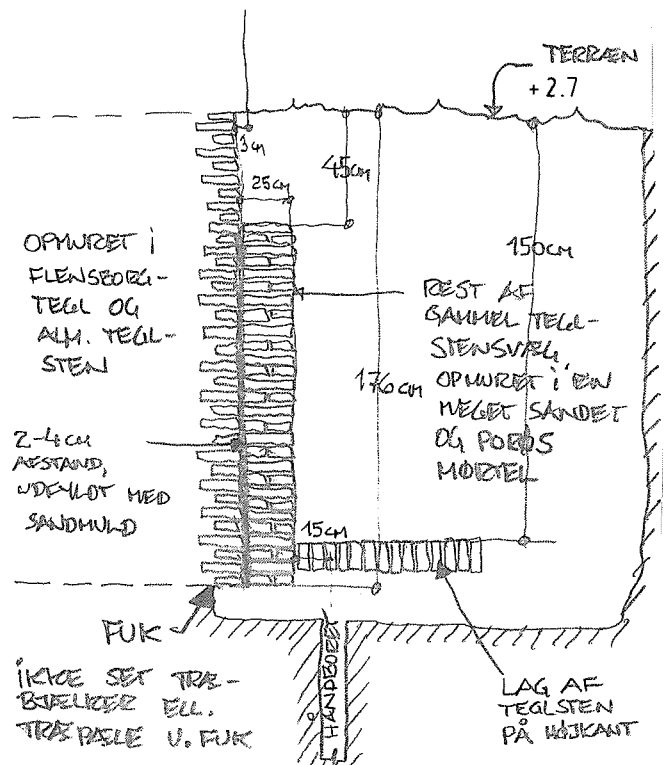 TERRÆN
+2.7
3 cm
45 cm
25 cm
150 cm
OPMURET I
FLENSBORG-
TEGL OG
ALM. TEGL-
STEN
REST AF
GAMMEL TEGL-
STENSVÆG
OPMURET I EN
MEGET SANDET
OG PORØS
MØRTEL
176 cm
2-4 cm
AFSTAND,
UDFYLDT MED
SANDMULD
15 cm
FUK
IKKE SET TRÆ-
BJÆLKER ELL.
TRÆPÆLE U. FUK
HÅNDBORET
LAG AF
TEGLSTEN
PÅ HØJKANT